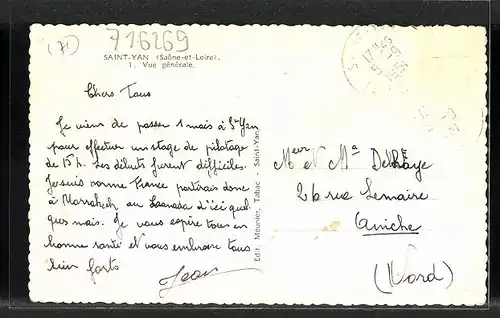 (71)
716269
SAINT-YAN (Saône-et-Loire).
1. Vue générale.
Chers Tous
Je viens de passer 1 mois à St Yan
pour effectuer un stage de pilotage
de 15 h. Les débuts furent difficiles.
Je suis comme France partirais donc
à Marrakech ou Canada d'ici quel
ques mois. Je vous espère tous en
bonne santé et vous embrasse tous
bien forts
Jean
Edit. Meunier, Tabac - Saint-Yan
17H45
5-9
Meur et Me Delhaye
26 rue Lemaire
Aniche
(Nord)